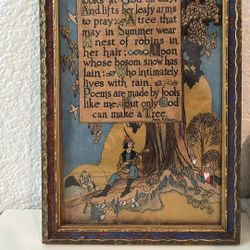 looks at God all day
And lifts her leafy arms
to pray; A tree that
may in Summer wear
A nest of robins in
her hair; Upon
whose bosom snow has
lain; Who intimately
lives with rain.
Poems are made by fools
like me, But only God
can make a Tree.